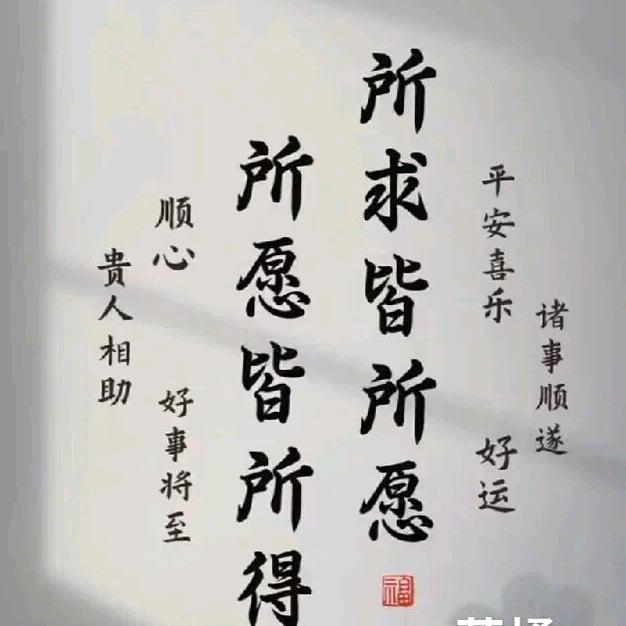 诸事顺遂
平安喜乐
好运
所求皆所愿
福
所愿皆所得
顺心
好事将至
贵人相助